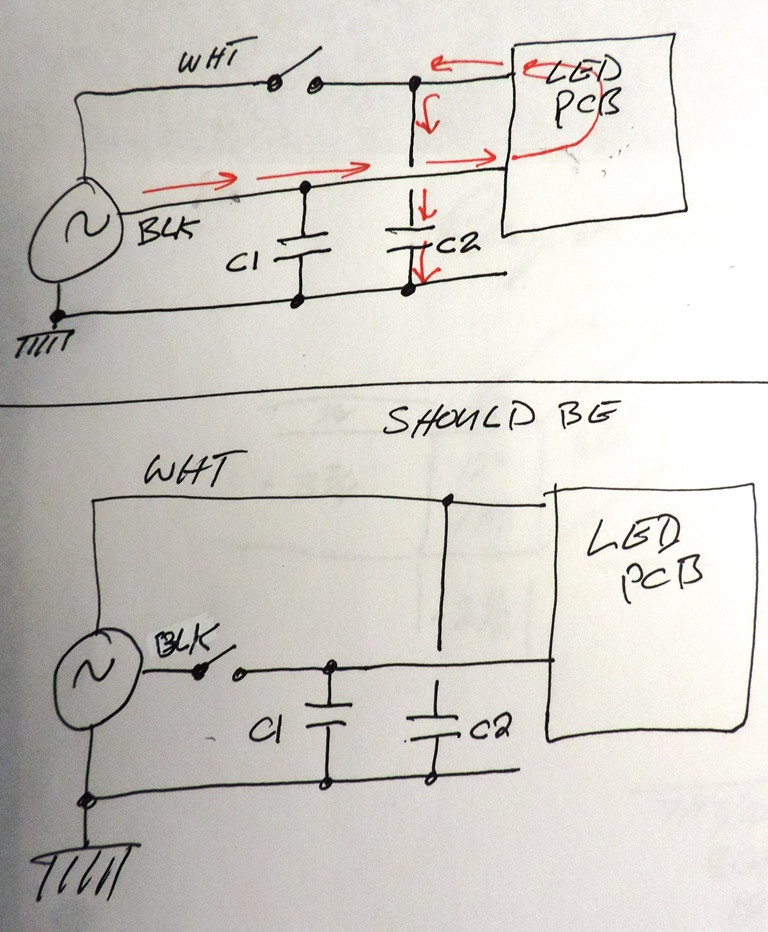 WHT
LED
PCB
BLK
C1
C2
SHOULD BE
WHT
LED
PCB
BLK
C1
C2